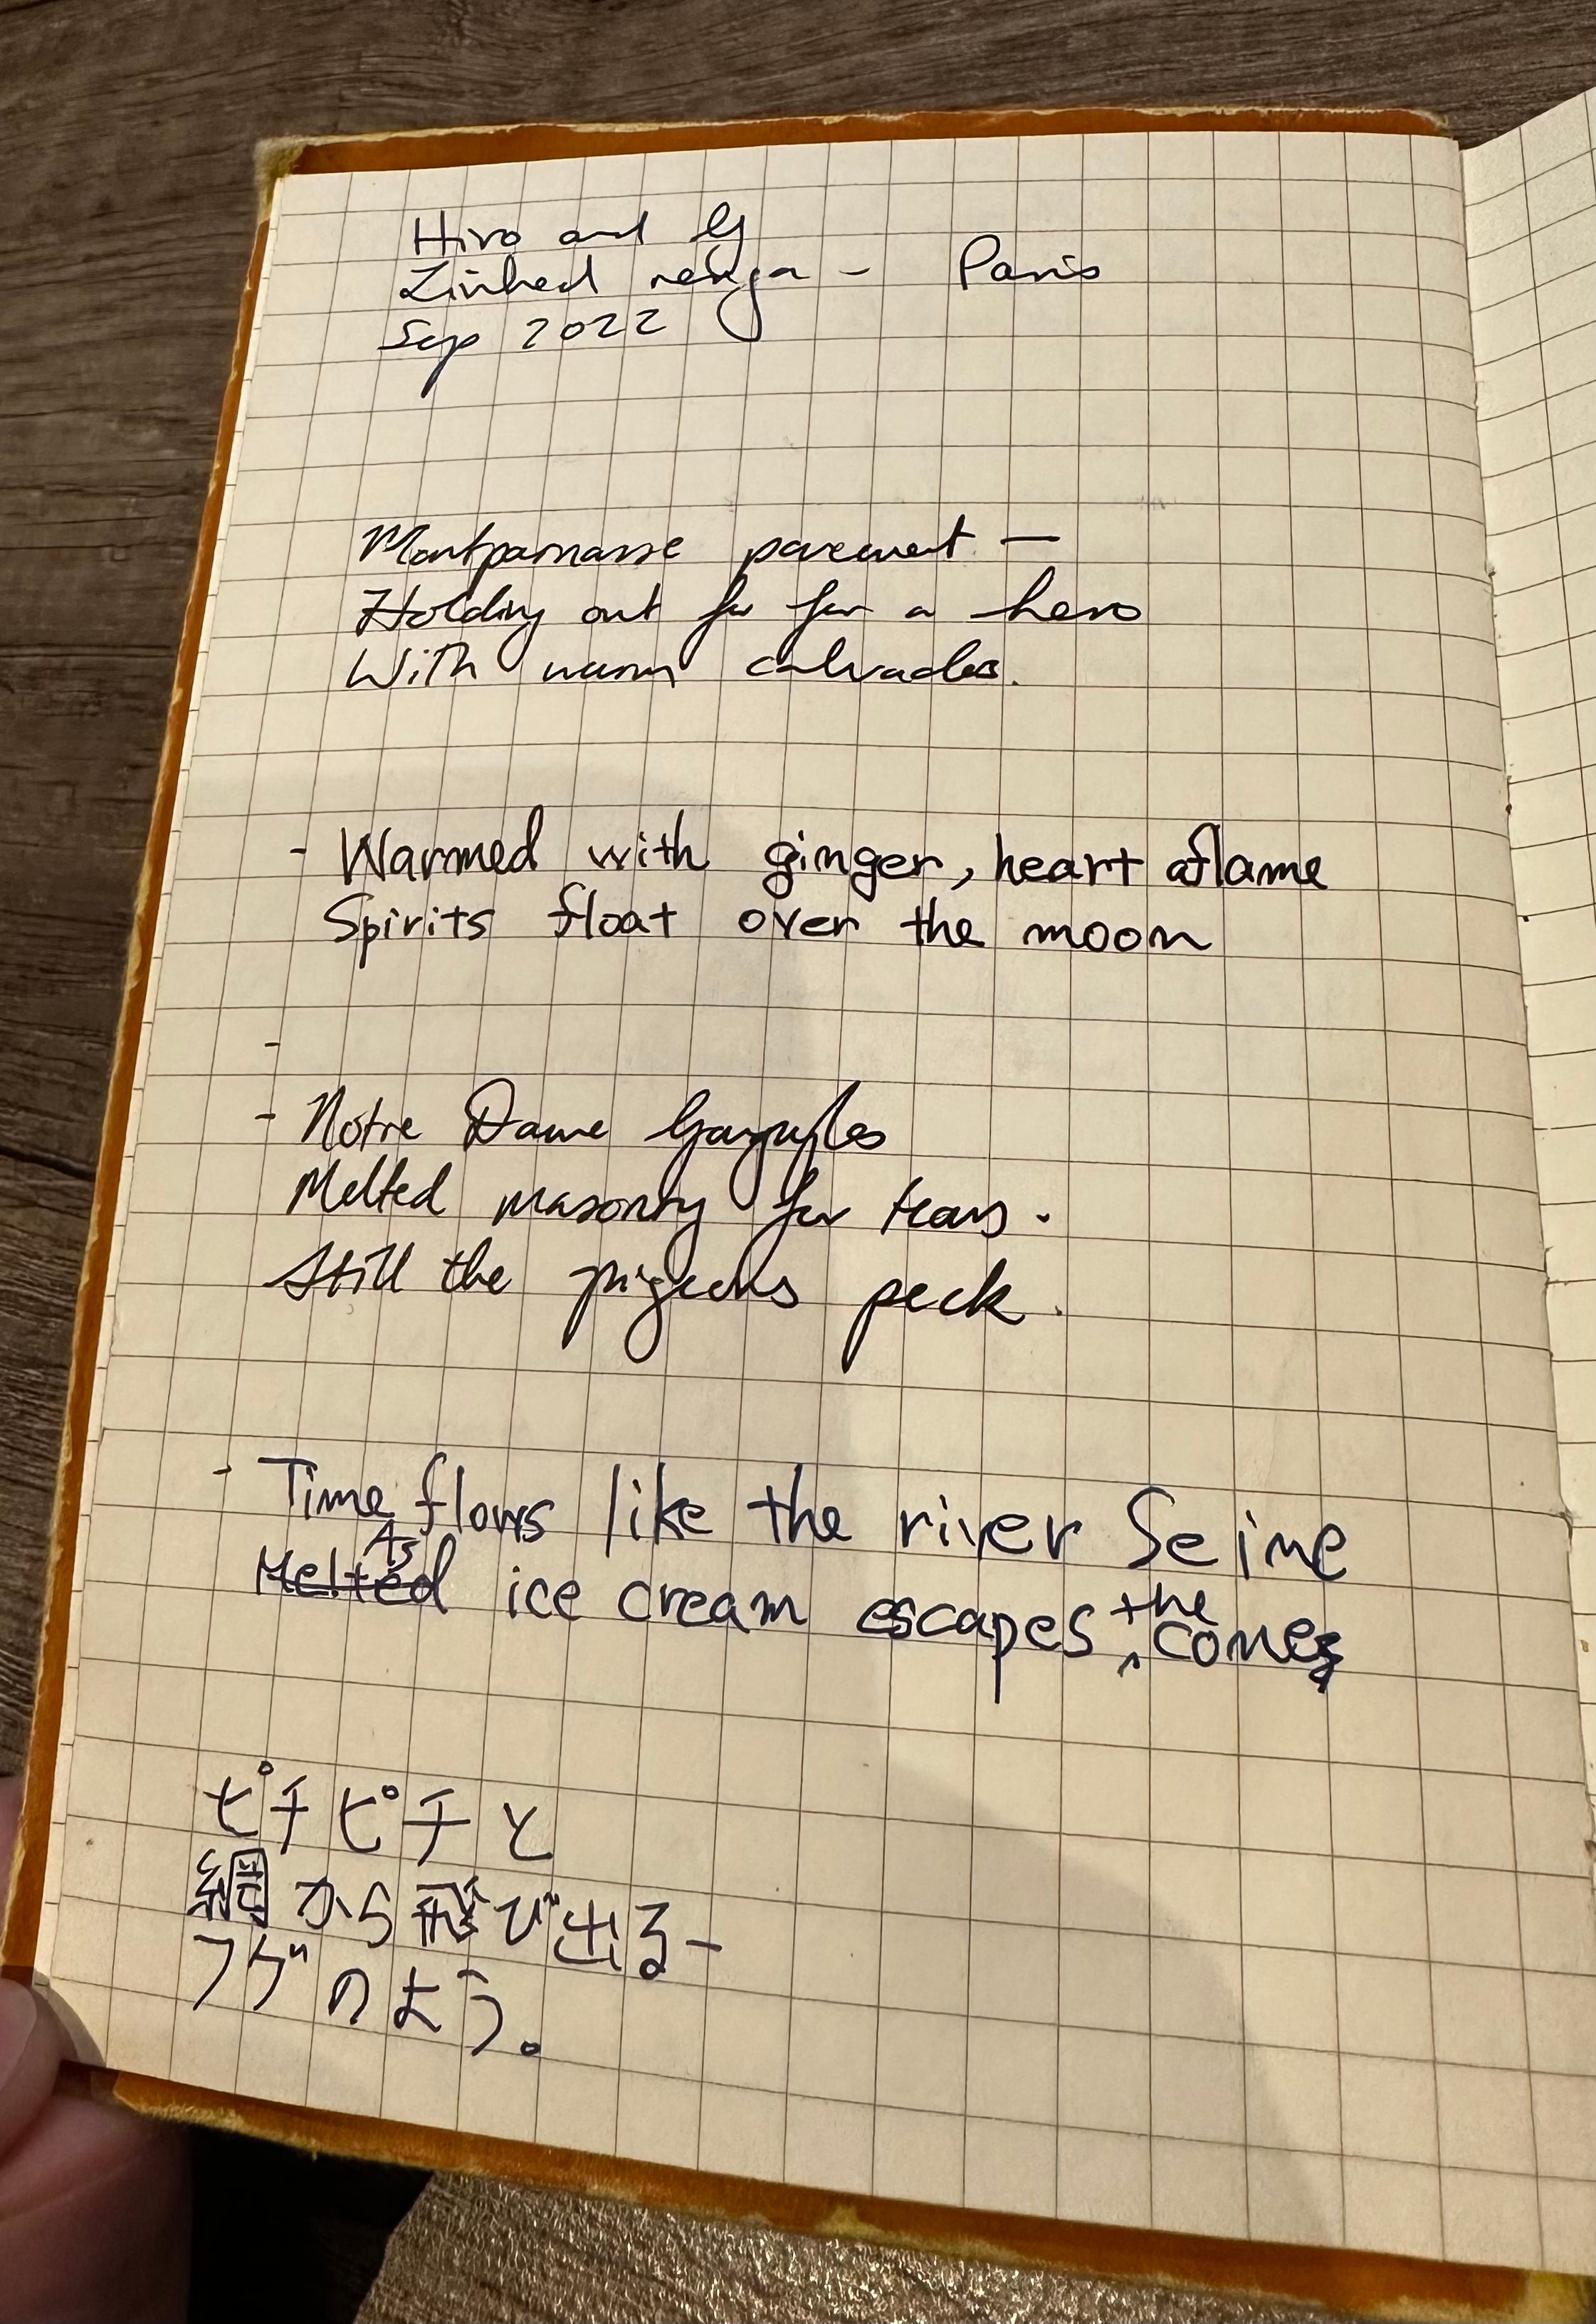 Hiro and G
Linked renga - Paris
Sep 2022
Montparnasse pavement —
Holding out for for a hero
With warm calvados.
- Warmed with ginger, heart aflame
Spirits float over the moon
-
- Notre Dame Gargoyles
Melted masonry for tears.
Still the pigeons peck.
- Time flows like the river Seine
As
Melted ice cream escapes the cones
ピチピチと
網から飛び出る-
フグのよう。